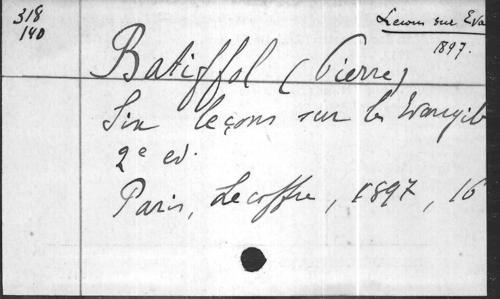 318
140
Leçons sur Eva
1897.
Batiffol (Pierre)
Six leçons sur les Evangil
2e ed.
Paris, Lecoffre, 1897, 16